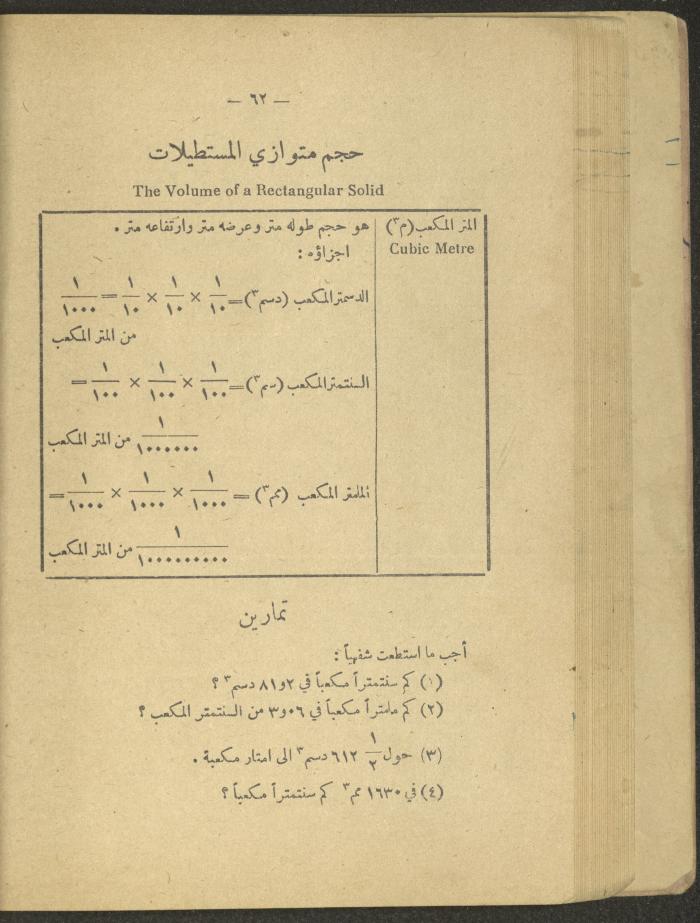 — ٦٢ —
حجم متوازي المستطيلات
The Volume of a Rectangular Solid
المتر المكعب (م٣)
Cubic Metre
هو حجم طوله متر وعرضه متر وارتفاعه متر .
اجزاؤه :
الدسمتر المكعب (دسم٣) = ١/١٠ × ١/١٠ × ١/١٠ = ١/١٠٠٠
من المتر المكعب
السنتمتر المكعب (سم٣) = ١/١٠٠ × ١/١٠٠ × ١/١٠٠ =
١/١٠٠٠٠٠٠ من المتر المكعب
الملمتر المكعب (مم٣) = ١/١٠٠٠ × ١/١٠٠٠ × ١/١٠٠٠ =
١/١٠٠٠٠٠٠٠٠٠ من المتر المكعب
تمارين
أجب ما استطعت شفهياً :
(١) كم سنتمتراً مكعباً في ٢و٨١ دسم٣ ؟
(٢) كم ملمتراً مكعباً في ٠٦و٣ من السنتمتر المكعب ؟
(٣) حول ١/٢ ٦١٢ دسم٣ الى امتار مكعبة .
(٤) في ١٦٣٠ مم٣ كم سنتمتراً مكعباً ؟